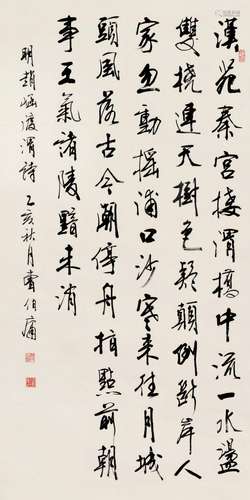 漢苑秦宮接渭橋中流一水盪
雙橈連天樹色疑顛倒斷岸人
家忽動搖浦口沙寒來往月城
頭風落古今潮停舟指點前朝
事王氣諸陵黯未消
明趙崡渡渭詩 乙亥秋月曹伯庸